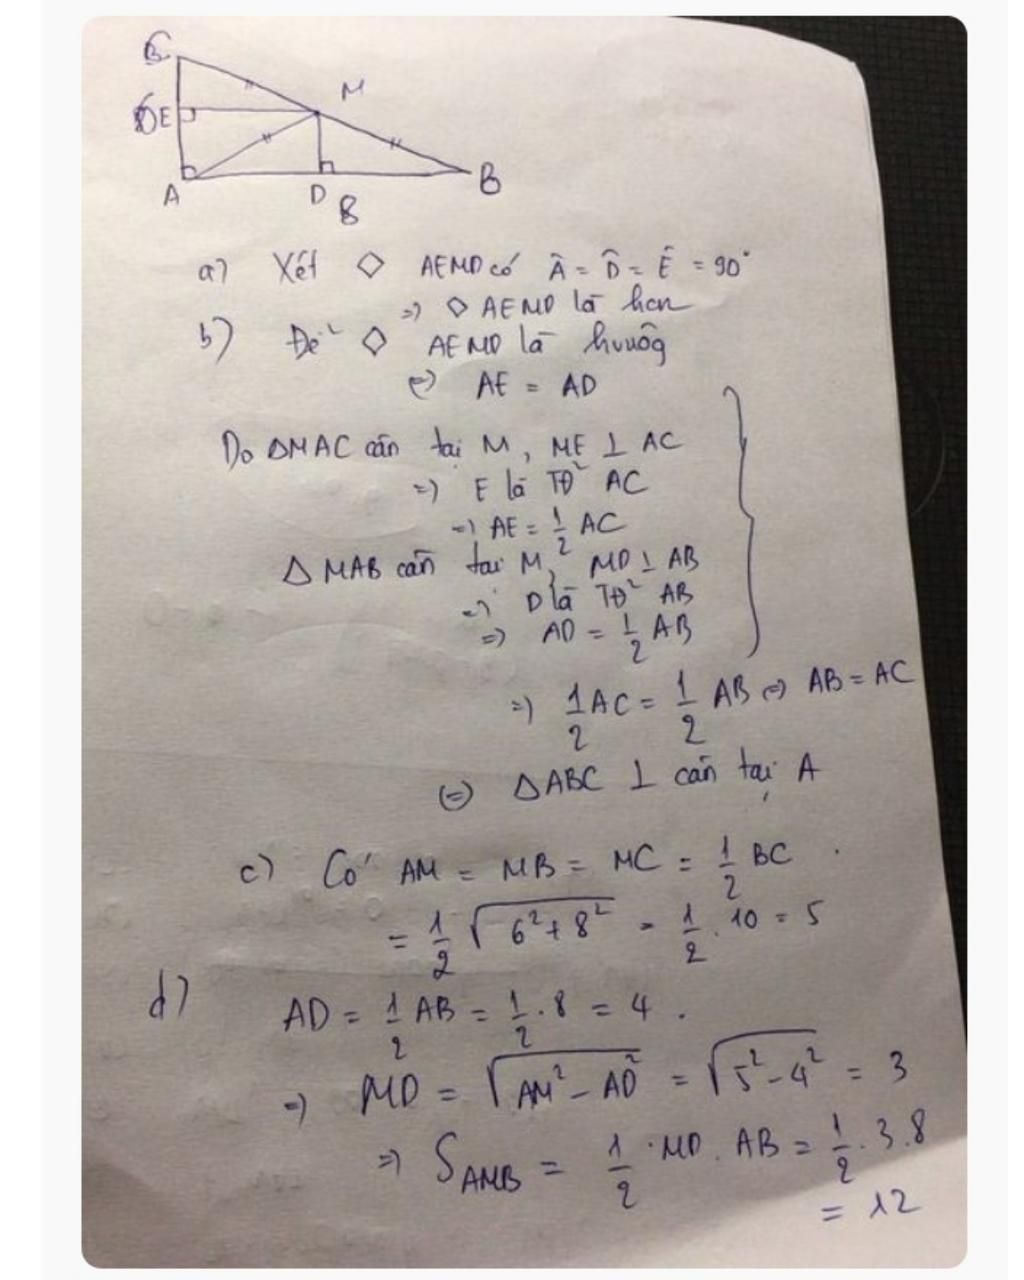 C
M
E
A
D
B
8
a) Xét ◇ AEMD có Â = D̂ = Ê = 90°
=> ◇ AEMD là hcn
b) Để ◇ AEMD là hvuôg
<=> AE = AD
Do ΔMAC cân tại M, ME ⊥ AC
=> E là TĐ² AC
=> AE = 1/2 AC
Δ MAB cân tại M, MD ⊥ AB
=> D là TĐ² AB
=> AD = 1/2 AB
=> 1/2 AC = 1/2 AB <=> AB = AC
<=> ΔABC ⊥ cân tại A
c) Có AM = MB = MC = 1/2 BC.
= 1/2 √(6² + 8²) = 1/2 . 10 = 5
d) AD = 1/2 AB = 1/2 . 8 = 4.
=> MD = √(AM² - AD²) = √(5² - 4²) = 3
=> S_AMB = 1/2 . MD . AB = 1/2 . 3 . 8
= 12